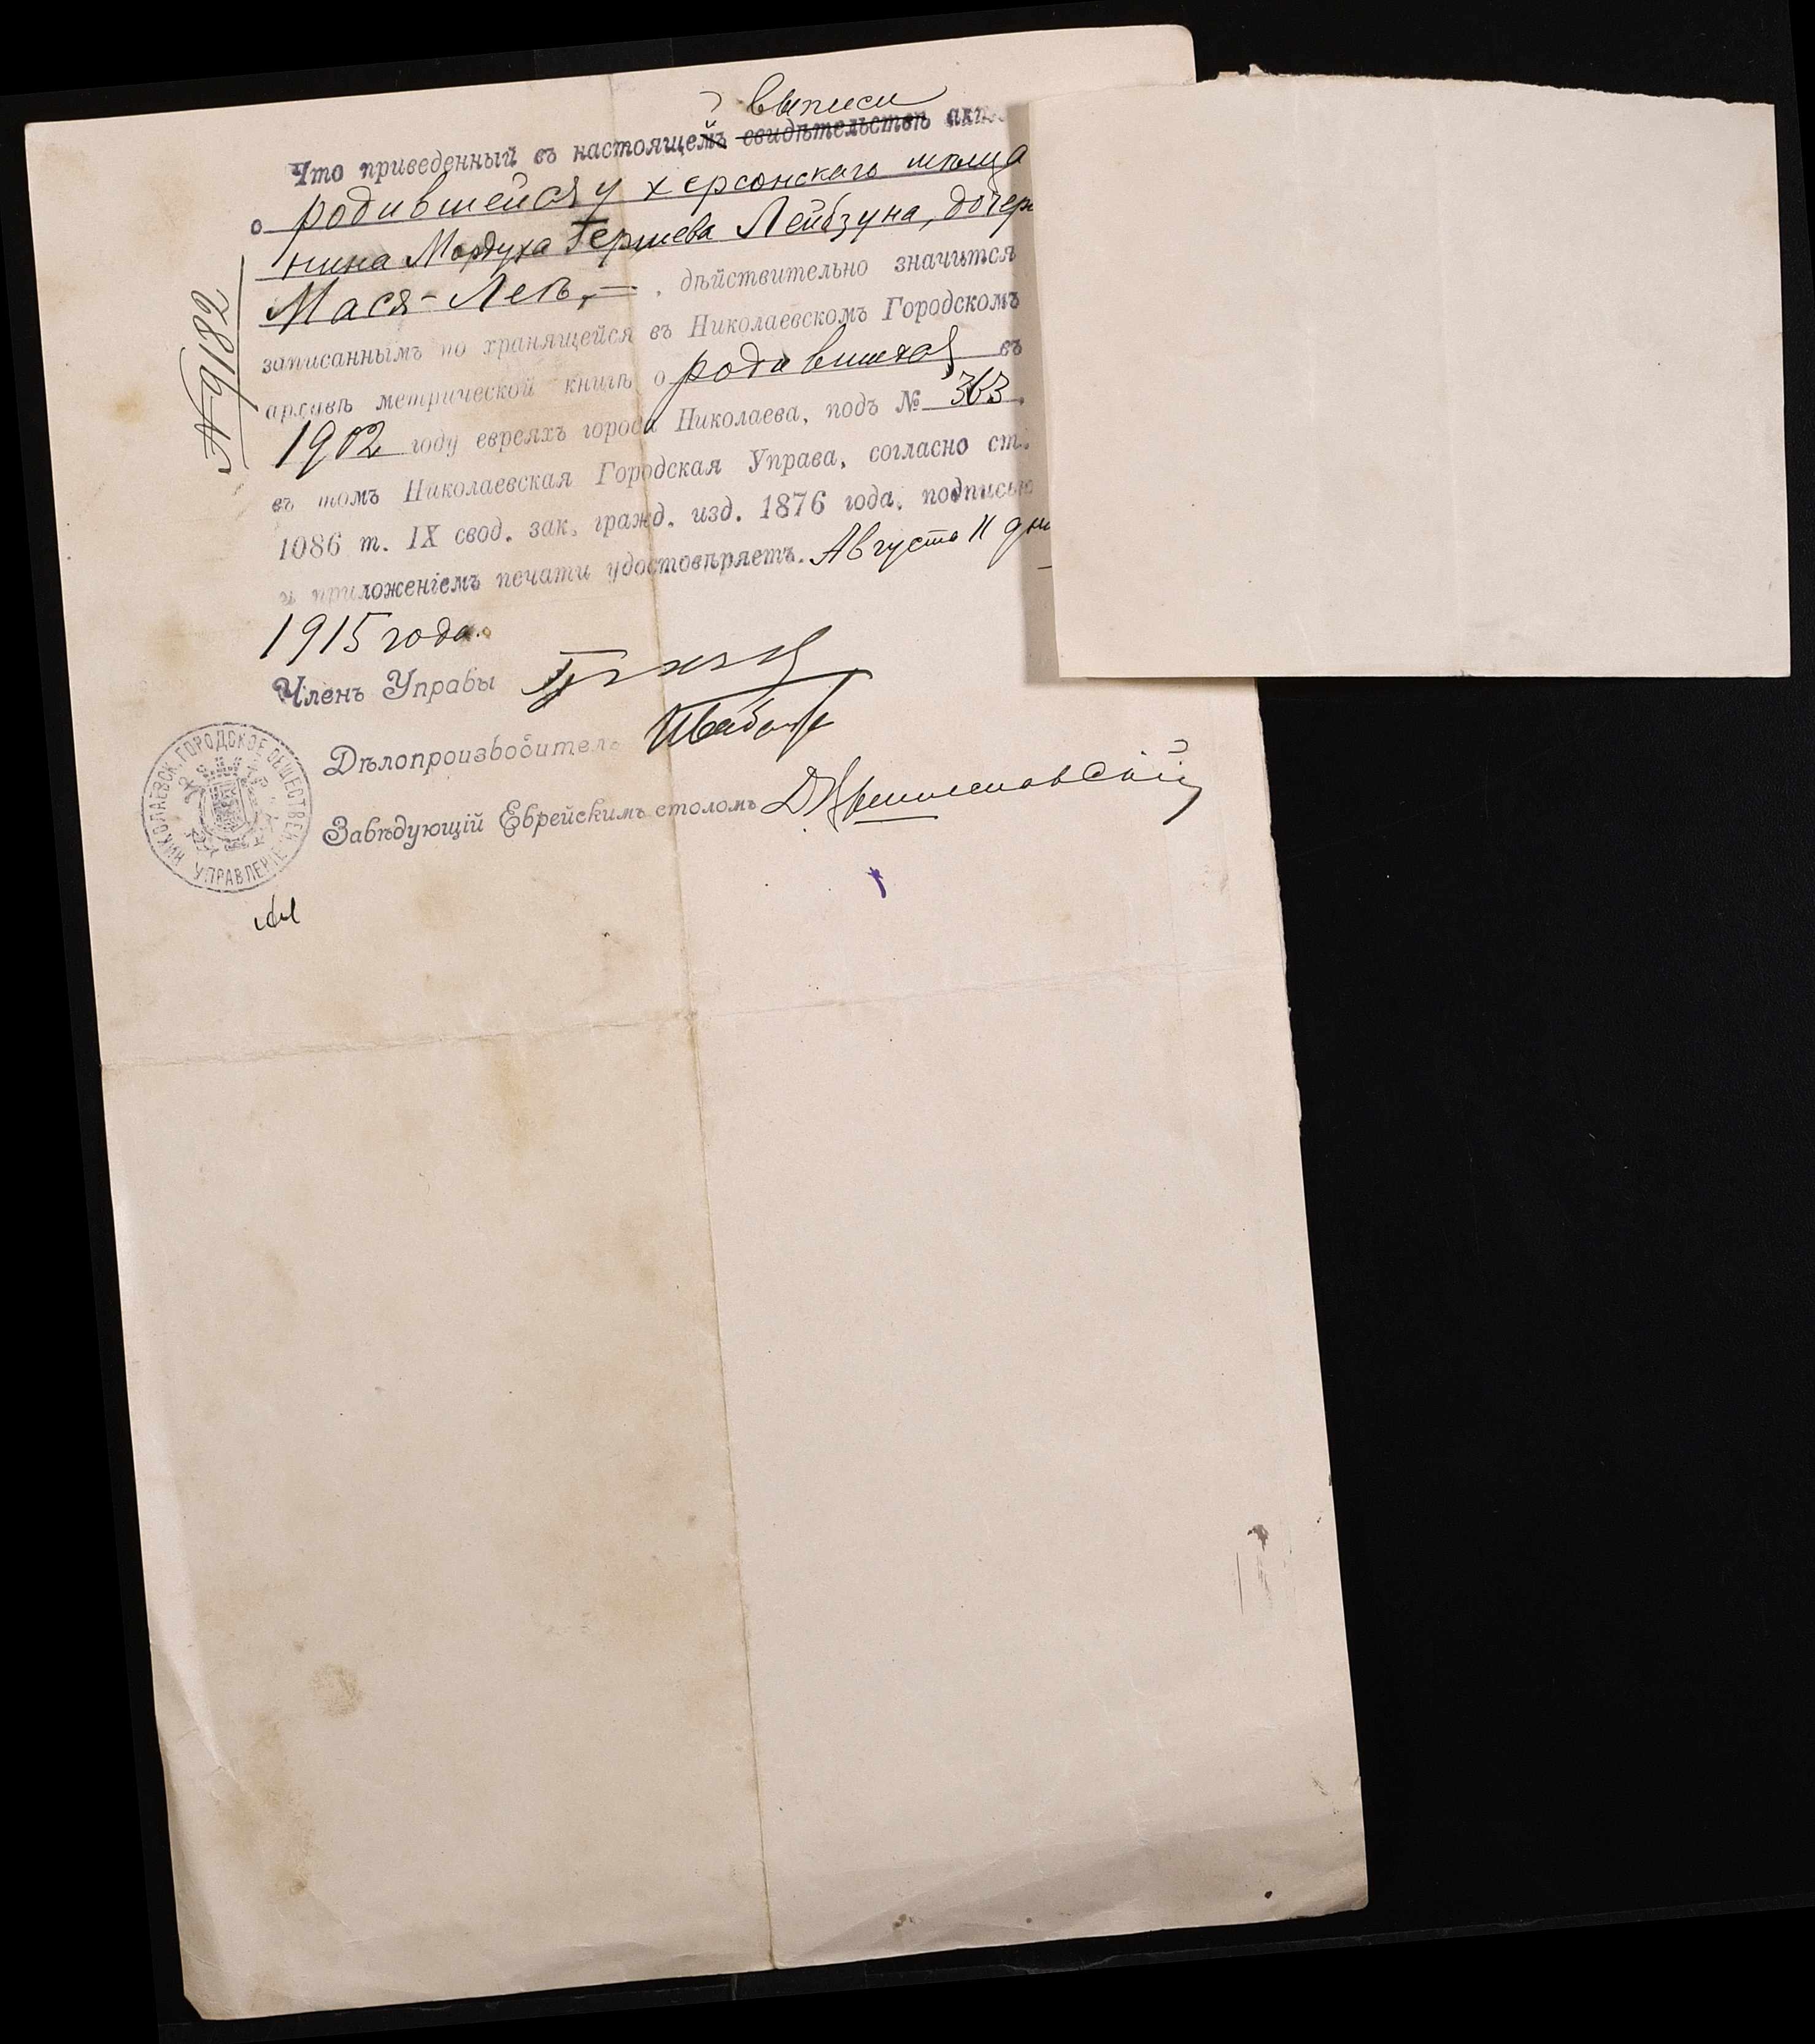 выписи
Что приведенный въ настоящей свидѣтельствѣ
о родившейся у херсонскаго мѣща
нина Мордуха Гершева Лейбзуна, дочери
Мася-Лея, дѣйствительно значится
записаннымъ по хранящейся въ Николаевскомъ Городскомъ
архивѣ метрической книгѣ о родившихся въ
1902 году евреяхъ города Николаева, подъ № 363,
въ томъ Николаевская Городская Управа, согласно ст.
1086 т. IX свод. зак. гражд. изд. 1876 года, подписью
и приложеніемъ печати удостовѣряетъ. Августа 11 дня
1915 года.
№ 9182
Членъ Управы
Дѣлопроизводитель
Завѣдующій Еврейскимъ столомъ
НИКОЛАЕВСК. ГОРОДСКОЕ ОБЩЕСТВЕН. УПРАВЛЕНІЕ